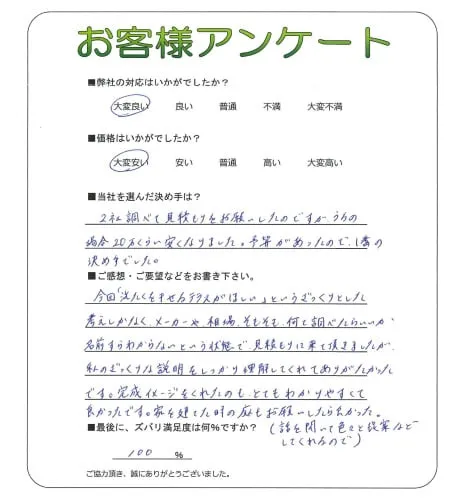 お客様アンケート
■弊社の対応はいかがでしたか?
大変良い 良い 普通 不満 大変不満
■価格はいかがでしたか?
大変安い 安い 普通 高い 大変高い
■当社を選んだ決め手は?
2社調べて見積もりをお願いしたのですが、うちの
場合20万くらい安くなりました。予算があったので、1番の
決め手でした。
■ご感想・ご要望などをお書き下さい。
今回「洗たくをほせるテラスがほしい」というざっくりとした
考えしかなく、メーカーや、相場、そもそも、何て調べたらいいか
名前すらわからないという状態で、見積もりに来て頂きましたが、
私のざっくりな説明をしっかり理解してくれてありがたかった
です。完成イメージをくれたのも、とてもわかりやすくて
良かったです。家を建てた時の庭もお願いしたら良かった。
(話を聞いて色々と提案など
してくれるので)
■最後に、ズバリ満足度は何%ですか?
100 %
ご協力頂き、誠にありがとうございました。